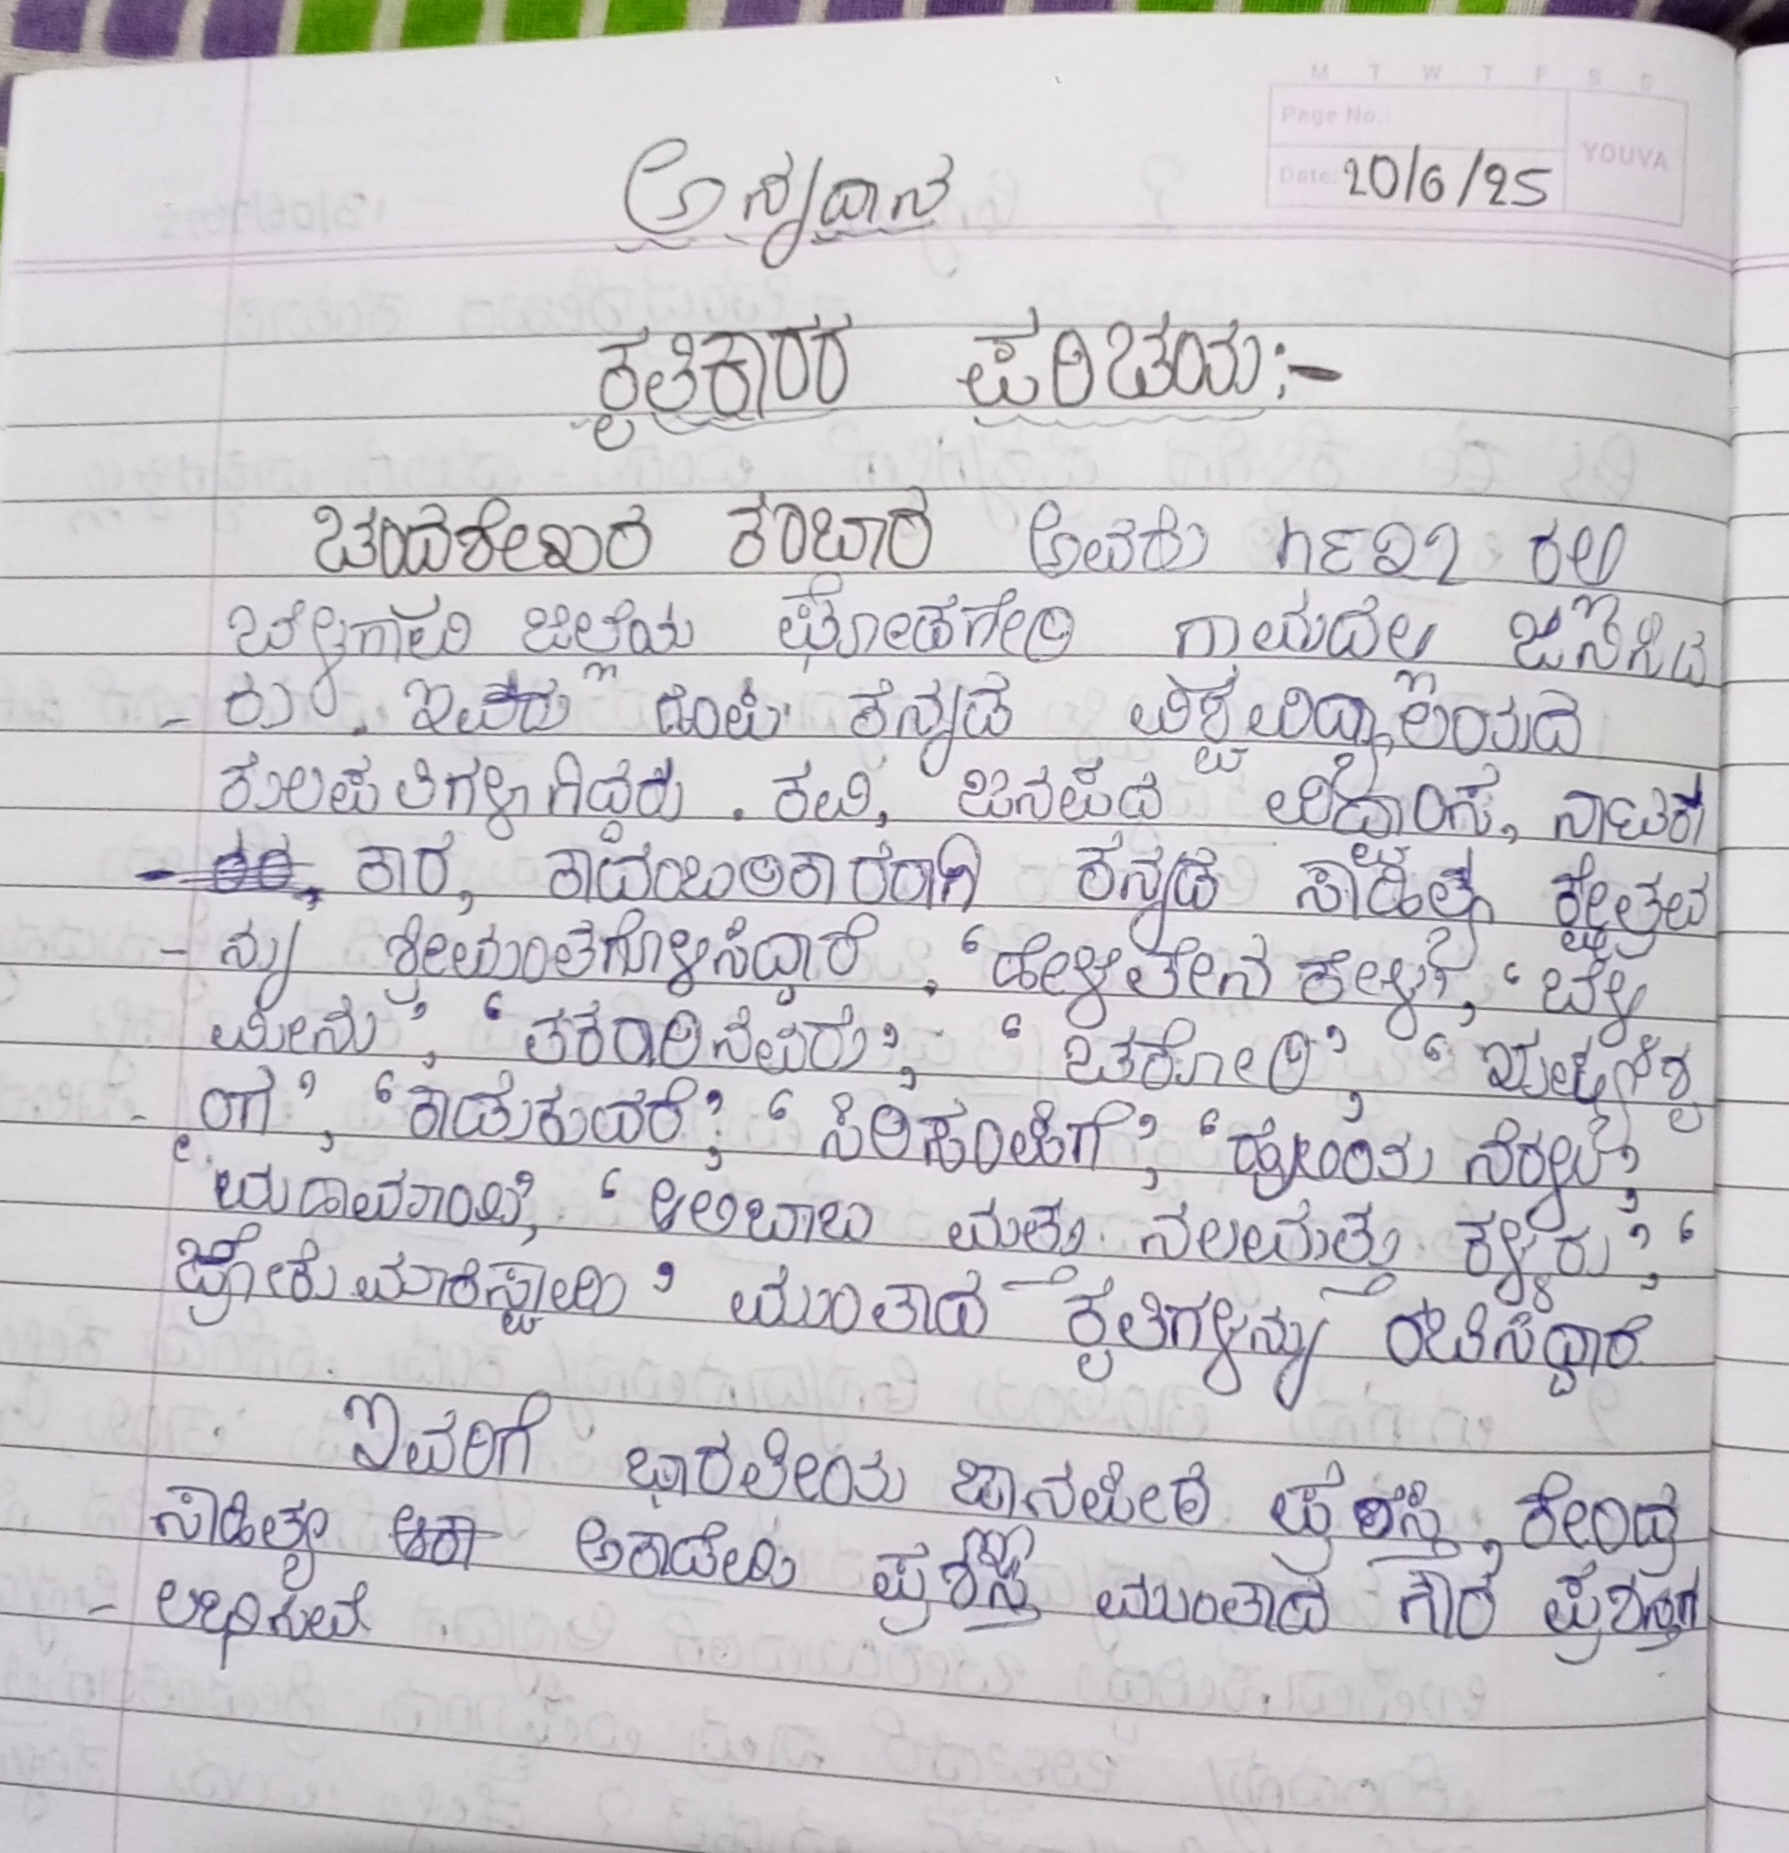 M T W T F S S
Page No.:
YOUVA
Date: 20/6/25
ಅನ್ನದಾನ
ಕೃತಿಕಾರರ ಪರಿಚಯ:-
ಚಂದ್ರಶೇಖರ ಕಂಬಾರ ಅವರು ೧೯೩೭ ರಲ್ಲಿ
ಬೆಳಗಾವಿ ಜಿಲ್ಲೆಯ ಘೋಡಗೇರಿ ಗ್ರಾಮದಲ್ಲಿ ಜನಿಸಿದ
- ರು. ಇವರು ಹಂಪಿ ಕನ್ನಡ ವಿಶ್ವವಿದ್ಯಾಲಯದ
ಕುಲಪತಿಗಳಾಗಿದ್ದರು. ಕವಿ, ಜನಪದ ವಿದ್ವಾಂಸ, ನಾಟಕ
- ಕಾರ, ಕಾದಂಬರಿಕಾರರಾಗಿ ಕನ್ನಡ ಸಾಹಿತ್ಯ ಕ್ಷೇತ್ರವ
- ನ್ನು ಶ್ರೀಮಂತಗೊಳಿಸಿದ್ದಾರೆ. 'ಹೇಳತೇನ ಕೇಳ', 'ಬೆಳ್ಳಿ
ಮೀನು', 'ತಕರಾರಿನೆವರು', 'ಚಕೋರಿ', 'ಋಷ್ಯಶೃ
- ಂಗ', 'ಕಾಡುಕುದುರೆ', 'ಸಿರಿಸಂಪಿಗೆ', 'ಹುಲಿಯ ನೆರಳು',
'ಮಹಾಮಾಯಿ', 'ಆಲಿಬಾಬ ಮತ್ತು ನಲವತ್ತು ಕಳ್ಳರು', '
ಜೋಕುಮಾರಸ್ವಾಮಿ' ಮುಂತಾದ ಕೃತಿಗಳನ್ನು ರಚಿಸಿದ್ದಾರೆ
ಇವರಿಗೆ ಭಾರತೀಯ ಜ್ಞಾನಪೀಠ ಪ್ರಶಸ್ತಿ, ಕೇಂದ್ರ
ಸಾಹಿತ್ಯ ಅಕಾಡೆಮಿ ಪ್ರಶಸ್ತಿ ಮುಂತಾದ ಗೌರ ಪ್ರಶಸ್ತಿಗ
- ಲಭಿಸಿವೆ